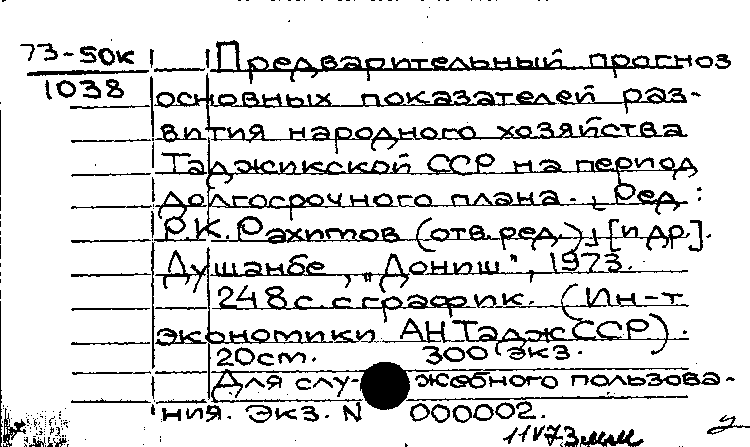 73-50к
1038
Предварительный прогноз
основных показателей раз-
вития народного хозяйства
Таджикской ССР на период
долгосрочного плана. Ред.:
Р.К. Рахимов (отв. ред.), [и др.].
Душанбе, „Дониш", 1973.
248 с. с график. (Ин-т
экономики АН ТаджССР).
20 cm. 300 экз.
Для служебного пользова-
ния. Экз. N 000002.